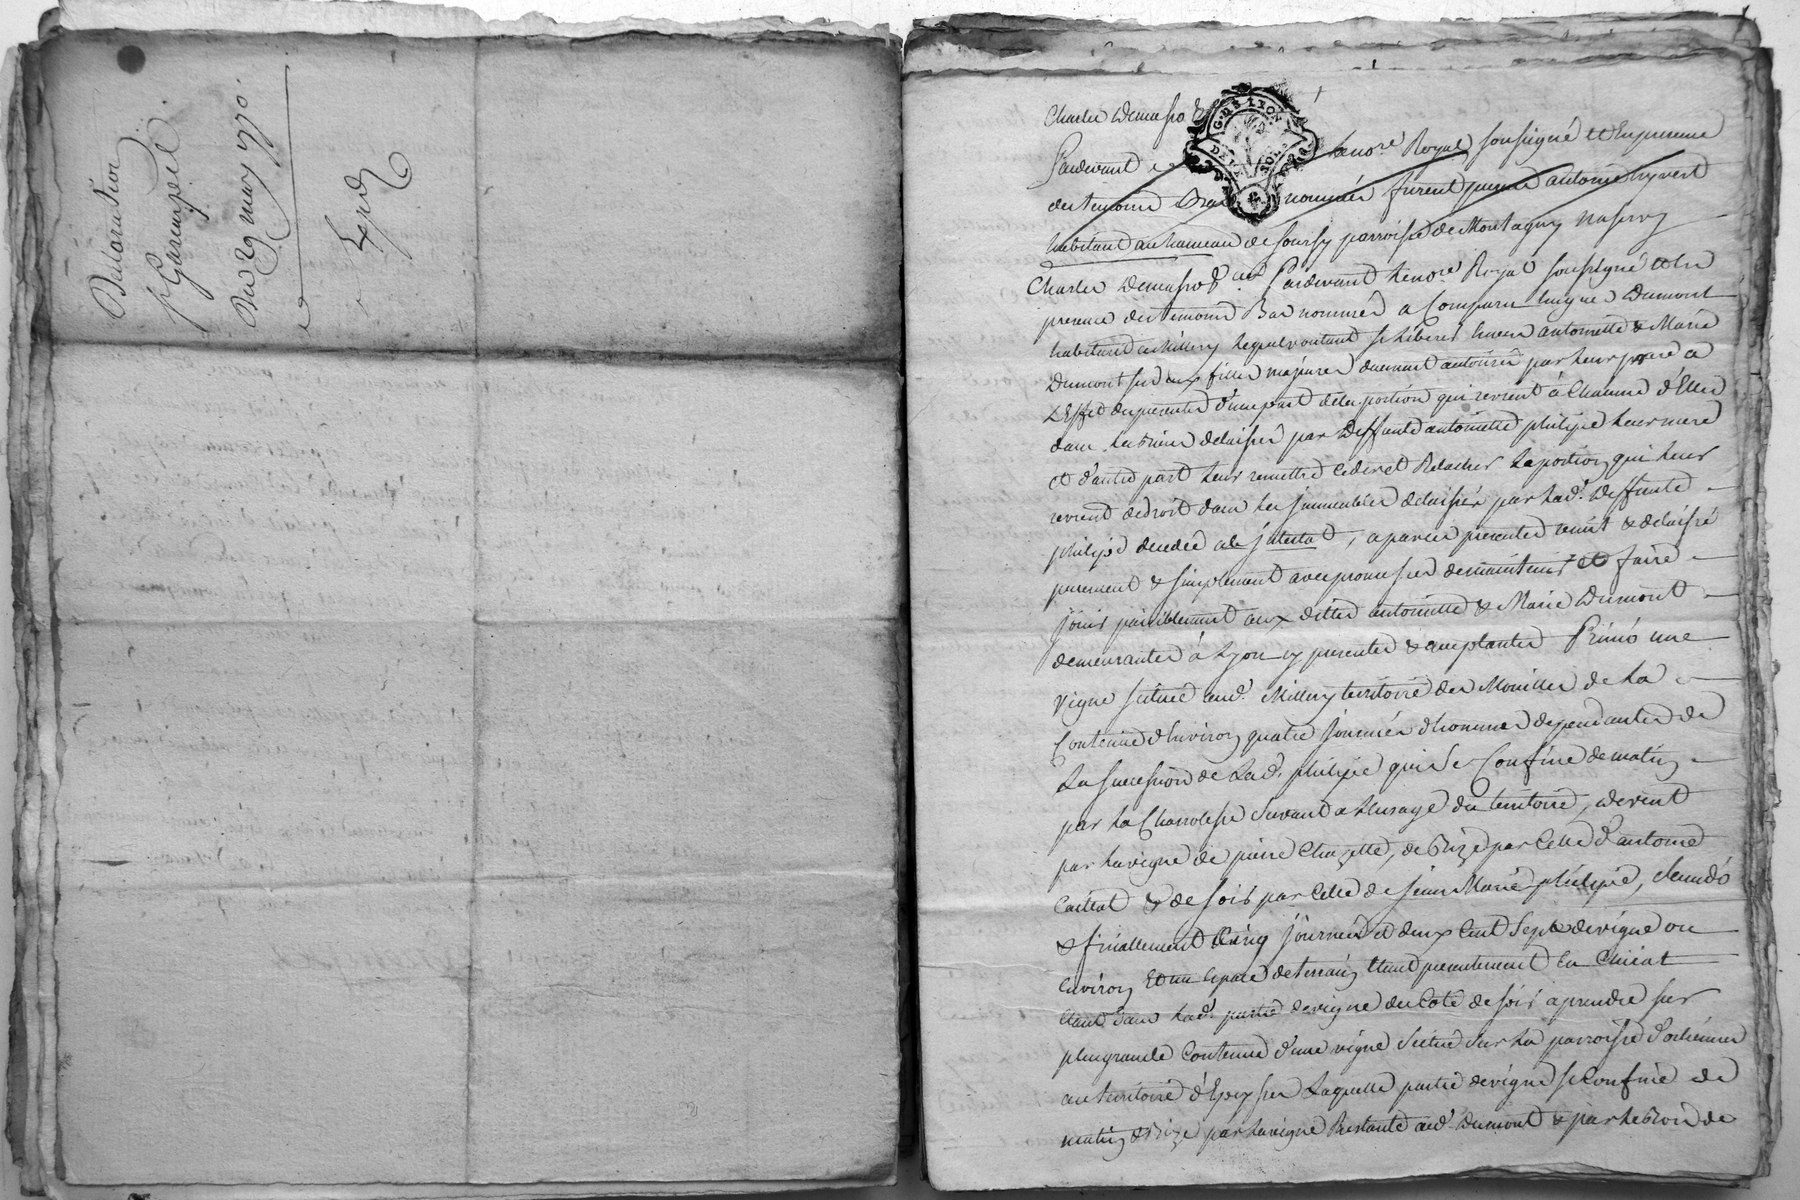 Declaration
pr Garempeil.
Du 29 may 1770.
Expd
G. DE LYON
DEUX SOLS
Charles Demasso &
Pardevant le notre. Royal soussigné et En presence
des temoins Bas nommés furent present antoine hyvert
habitant au hameau de sourzy parroisse de Montagny
Charles Demasso &. Pardevant Le nore. Royal soussigné et En
presence des temoins Bas nommés a Comparu hugues Dumont
habitant a Millery Lequel voulant se Liberer Envers antoinette & Marie
Dumont ses deux filles majeures duement autorisées par Leur pere a
L'Effet des presentes d'une part de la portion qui revient à Chacune d'Elles
dans Les Biens delaissés par deffunte antoinette philipe Leur mere
et d'autre part Leur remettre ceder et Relacher La portion qui Leur
revient de droit dans Les jmmeubles delaissés par Lad. deffunte
philipe decedée ab jntestat, a par ces presentes remis & delaissé
purement & simplement avec promesses de maintenir et faire
jouir paisiblement aux dittes antoinette & Marie Dumont
demeurantes à Lyon cy presentes & acceptantes Primò une
vigne scituée aud. Millery territoire des Mouilles de La
Contenue d'Environ quatre journées d'homme dependantes de
La succession de Lad. philipe qui se Confine de matin
par La Charriere servant a L'usage du territoire, de vent
par La vigne de pierre Chazette, de Bize par Celle d'antoine
& de soir par Celle de jean Marie philipe, secundò
& finallement Cinq journées et deux Cent Seps de vigne ou
Environ Et un Espace de terrain Etant presentement En
Etant dans Lad. partie de vigne du Coté de soir a prendre sur
plus grande Contenue d'une vigne scituée sur La parroisse d'orlienas
au territoire d' Laquelle partie de vigne se Confine de
matin & Bize par La vigne Restante aud. Dumont & par Le de